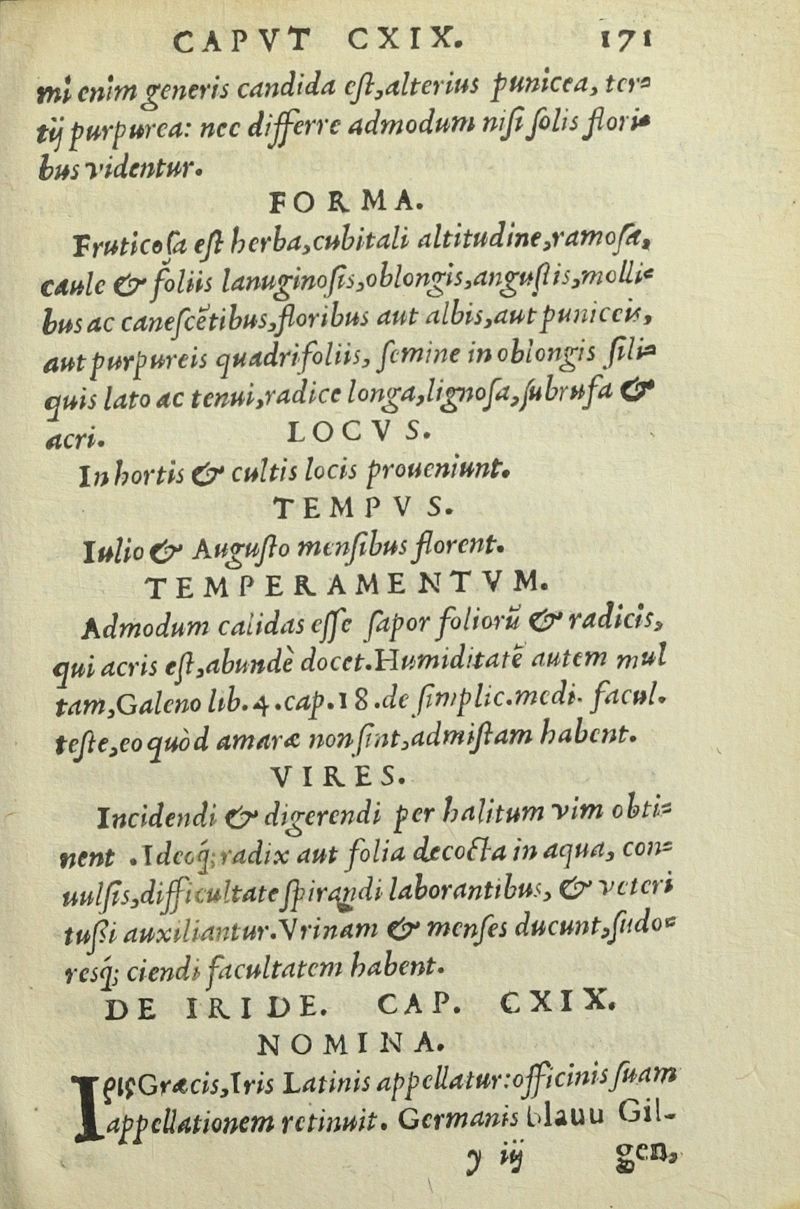 CAPVT CXIX. 171
mi enim generis candida eſt, alterius punicea, ter-
tij purpurea: nec differre admodum niſi ſolis flori-
bus videntur.
FORMA.
Fruticoſa eſt herba, cubitali altitudine, ramoſa,
caule & foliis lanuginoſis, oblongis, anguſtis, molli-
bus ac caneſcẽtibus, floribus aut albis, aut puniceis,
aut purpureis quadrifoliis, ſemine in oblongis ſili-
quis lato ac tenui, radice longa, lignoſa, ſubrufa &
acri. LOCVS.
In hortis & cultis locis proueniunt.
TEMPVS.
Iulio & Auguſto menſibus florent.
TEMPERAMENTVM.
Admodum calidas eſſe ſapor foliorũ & radicis,
qui acris eſt, abundè docet. Humiditatẽ autem mul
tam, Galeno lib. 4. cap. 18. de ſimplic. medi. facul.
teſte, eo quòd amaræ non ſint, admiſtam habent.
VIRES.
Incidendi & digerendi per halitum vim obti-
nent. Ideoq́; radix aut folia decocta in aqua, con-
uulſis, difficultate ſpirandi laborantibus, & veteri
tuſſi auxiliantur. Vrinam & menſes ducunt, ſudo-
resq́; ciendi facultatem habent.
DE IRIDE. CAP. CXIX.
NOMINA.
Iρις Græcis, Iris Latinis appellatur: officinis ſuam
appellationem retinuit. Germanis blauu Gil-
y iij gen,